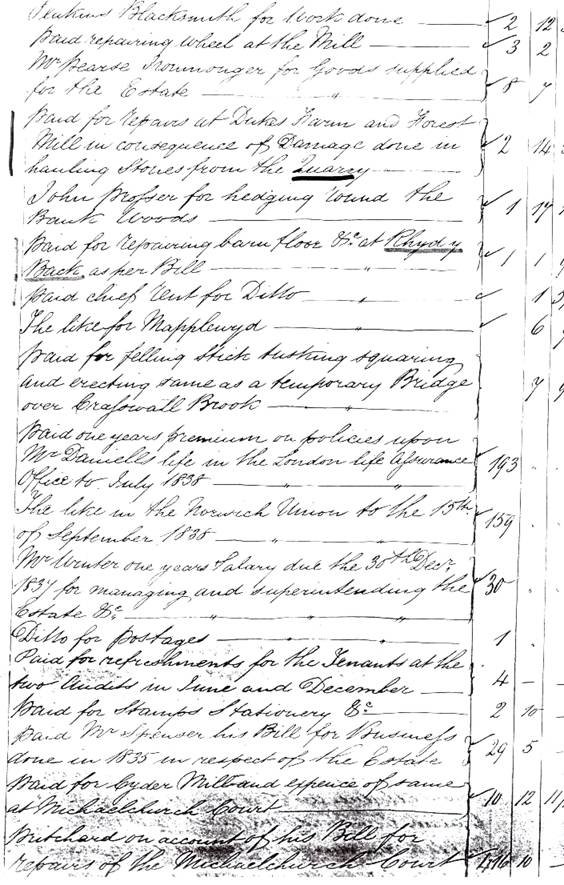 Jenkins Blacksmith for Work done — 2 12
paid repairing wheel at the Mill — 3 2
Mr Pearse Ironmonger for Goods supplied
for the Estate — " — 8 7
Paid for repairs at Dukes Farm and Forest
Mill in consequence of Damage done in 2 14
hauling Stones from the Quarry —
John Prosser for hedging round the
Bank Woods — 1 17
paid for repairing barn floor &c at Rhyd y
Back as per Bill — 1 1
paid chief rent for Ditto — " 1
The like for Mapplewyd — " 6
paid for felling Stick tushing squaring
and erecting same as a temporary Bridge 7
over Crasswall Brook — " —
paid one years premium on policies upon
Mr Daniells life in the London life Assurance 193 . .
Office to July 1838 — " "
The like in the Norwich Union to the 15th
of September 1838 — 159 . .
Mr Winter one years Salary due the 30th Decr
1837 for managing and superintending the 30 . .
Estate &c " " "
Ditto for postages — " " 1 .
Paid for refreshments for the Tenants at the
two Audits in June and December — 4 — —
paid for Stamps Stationery &c — 2 10 —
paid Mr Spenser his Bill for Business
done in 1835 in respect of the Estate 29 5 —
paid for Cyder Mill and expence of same
at Michaelchurch Court — 10 12 11
Pritchard on account of his Bill for
repairs of the Michaelchurch Court 10 —